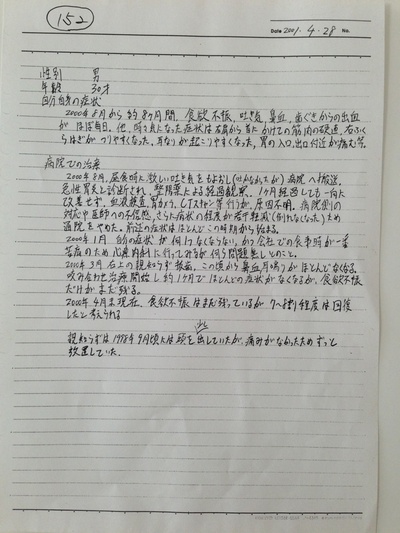 152
Date 2001. 4. 28 No.
性別 男
年齢 30才
自分自身の症状
2000年8月から約8ヶ月間、食欲不振、吐き気、鼻血、歯ぐきからの出血
がほぼ毎日。他、時々 になった症状は右肩から首にかけての筋肉の硬直、右ふく
らはぎがつりやすくなった、耳なりが起こりやすくなった、胃の入口、出口付近が痛む等。
病院での治療
2000年8月、昼食時に激しい吐き気をもよおし(吐かなかったが)病院へ搬送、
急性胃炎と診断され、整腸薬による経過観察、1ヶ月経過しても一向に
改善せず。血液検査、胃カメラ、CTスキャン等行うが、原因不明。病院側の
対応や医師への不信感、さらに病状の程度が若干軽減(倒れなくなった)ため
通院をやめた。前述の症状はほとんどこの時期から始まる。
2000年1月 の症状が何 なくならない、かつ会社での食事時が一番
苦痛のため心療内科に行ってみるが何ら問題無しとのこと。
2000年3月 右上の親知らず抜歯、この頃から鼻血、耳鳴りがほとんどなくなる。
咬み合わせ治療開始し約1ヶ月でほとんどの症状がなくなるが、食欲不振
だけがまだ残る。
2000年4月末現在、食欲不振はまだ残っているが 7〜8割程度は回復
したと考えられる
親知らずは1998年9月頃には頭を少し出していたが、痛みがなかったためずっと
放置していた。